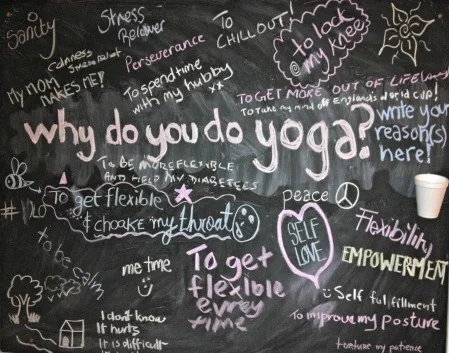 Sanity
Stress
Reliever
Calmness
Perseverance
To
CHILLOUT!
to lock
my knee
My MOM
MAKES ME!
To spend time
with my hubby
xx
TO GET MORE OUT OF LIFE
TO TAKE MY MIND OFF ENGLAND'S WORLD CUP!
why do you do yoga?
write your
reason(s)
here!
TO BE MORE FLEXIBLE
AND HELP MY DIABETEES
To get flexible
& choake my throat
peace
SELF
LOVE
Flexibility
EMPOWERMENT
to be calm
me time
To get
flexible
evrey
time
Self fulfillment
To improve my posture
I dont know
It hurts
It is difficult
torture my patience